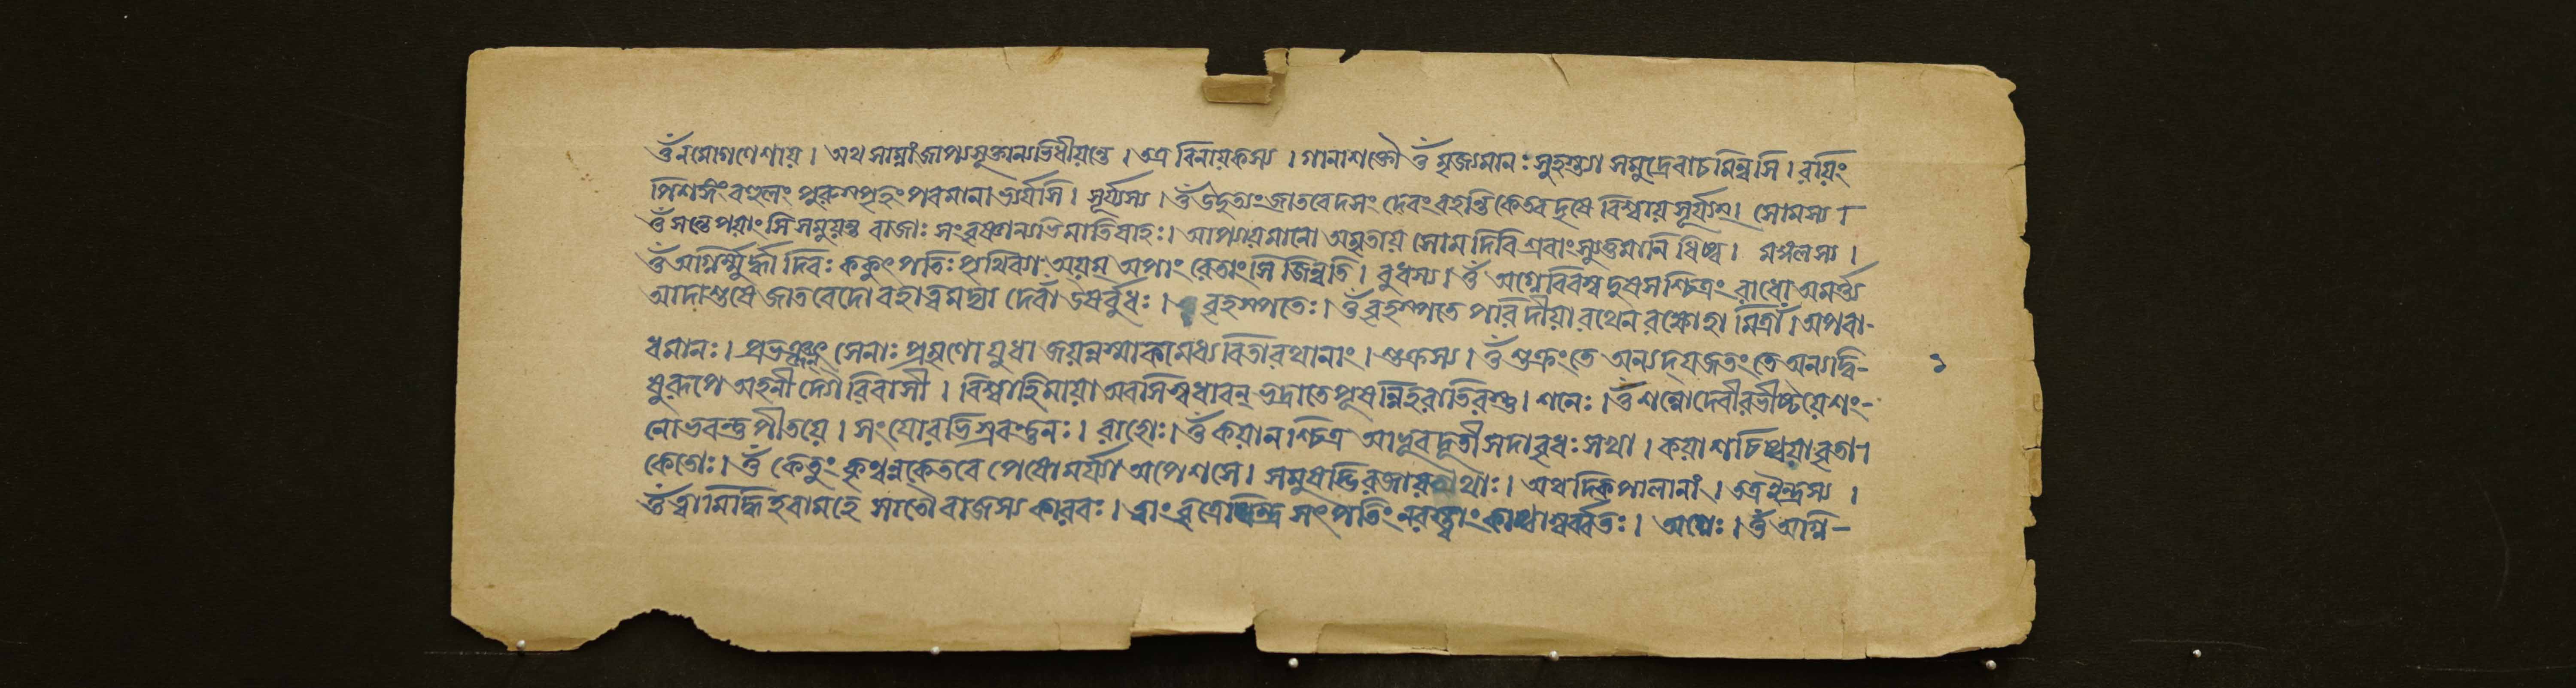 ওঁ নমো গণেশায় । অথ সাম্নাং জাপ্যসূক্তান্যভিধীয়ন্তে । তত্র বিনায়কস্য । গানাশক্তৌ ওঁ মৃজ্যমানঃ সুহস্ত্যা সমুদ্রে বাচমিন্বসি । রয়িং
পিশঙ্গং বহুলং পুরুস্পৃহং পবমানাভ্যর্ষসি । সূর্য্যস্য । ওঁ উদুত্যং জাতবেদসং দেবং বহন্তি কেতবঃ দৃষে বিশ্বায় সূর্য্যম্ । সোমস্য ।
ওঁ সন্তে পয়াংসি সমুয়ন্তু বাজাঃ সংবৃষ্ণ্যান্যভিমাতিষাহঃ । আপ্যায়মানো অমৃতায় সোম দিবি শ্রবাংস্যুত্তমানি ধিষ্ব । মঙ্গলস্য ।
ওঁ অগ্নির্ম্মুর্দ্ধা দিবঃ ককুৎপতিঃ পৃথিব্যা অয়ম্ অপাং রেতাংসি জিন্বতি । বুধস্য । ওঁ অগ্নে বিবস্ব দুষসশ্চিত্রং রাধো অমর্ত্ত্য
আদাশুষে জাতবেদো বহাত্বমদ্যা দেবাঁ উষর্বুধঃ । বৃহস্পতেঃ । ওঁ বৃহস্পতে পরিদীয়া রথেন রক্ষোহা মিত্রাঁ । অপবা-
ধমানঃ । প্রভঞ্জন্ সেনাঃ প্রমৃণো যুধা জয়ন্নস্মাকমেধ্যবিতা রথানাং । শুক্রস্য । ওঁ শুক্রং তে অন্যদ্ যজতং তে অন্যদ্বি- ১
ষুরূপে অহনী দ্যৌরিবাসী । বিশ্বাহি মায়া অবসি স্বধাবন্ ভদ্রাতে পূষন্নিহরাতিরস্তু । শনেঃ । ওঁ শন্নোদেবীরভীষ্টয়ে শং-
নো ভবন্তু পীতয়ে । সংযোরভিস্রবন্তু নঃ । রাহোঃ । ওঁ কয়ানশ্চিত্র আভুবদূতী সদাবৃধঃ সখা । কয়া শচিষ্ঠয়া বৃতা ।
কেতোঃ । ওঁ কেতুং কৃণ্বন্নকেতবে পেষো মর্য্যা অপেশসে । সমুষদ্ভিরজায়থাঃ । অথ দিক্পালানাং । তত্র ইন্দ্রস্য ।
ওঁ ত্বামিদ্ধি হবামহে সাতৌ বাজস্য কারবঃ । ত্বাং বৃত্রেষ্বিন্দ্র সৎপতিং নরস্ত্বাং কাষ্ঠাস্বর্ব্বতঃ । অগ্নেঃ । ওঁ অগ্নি-